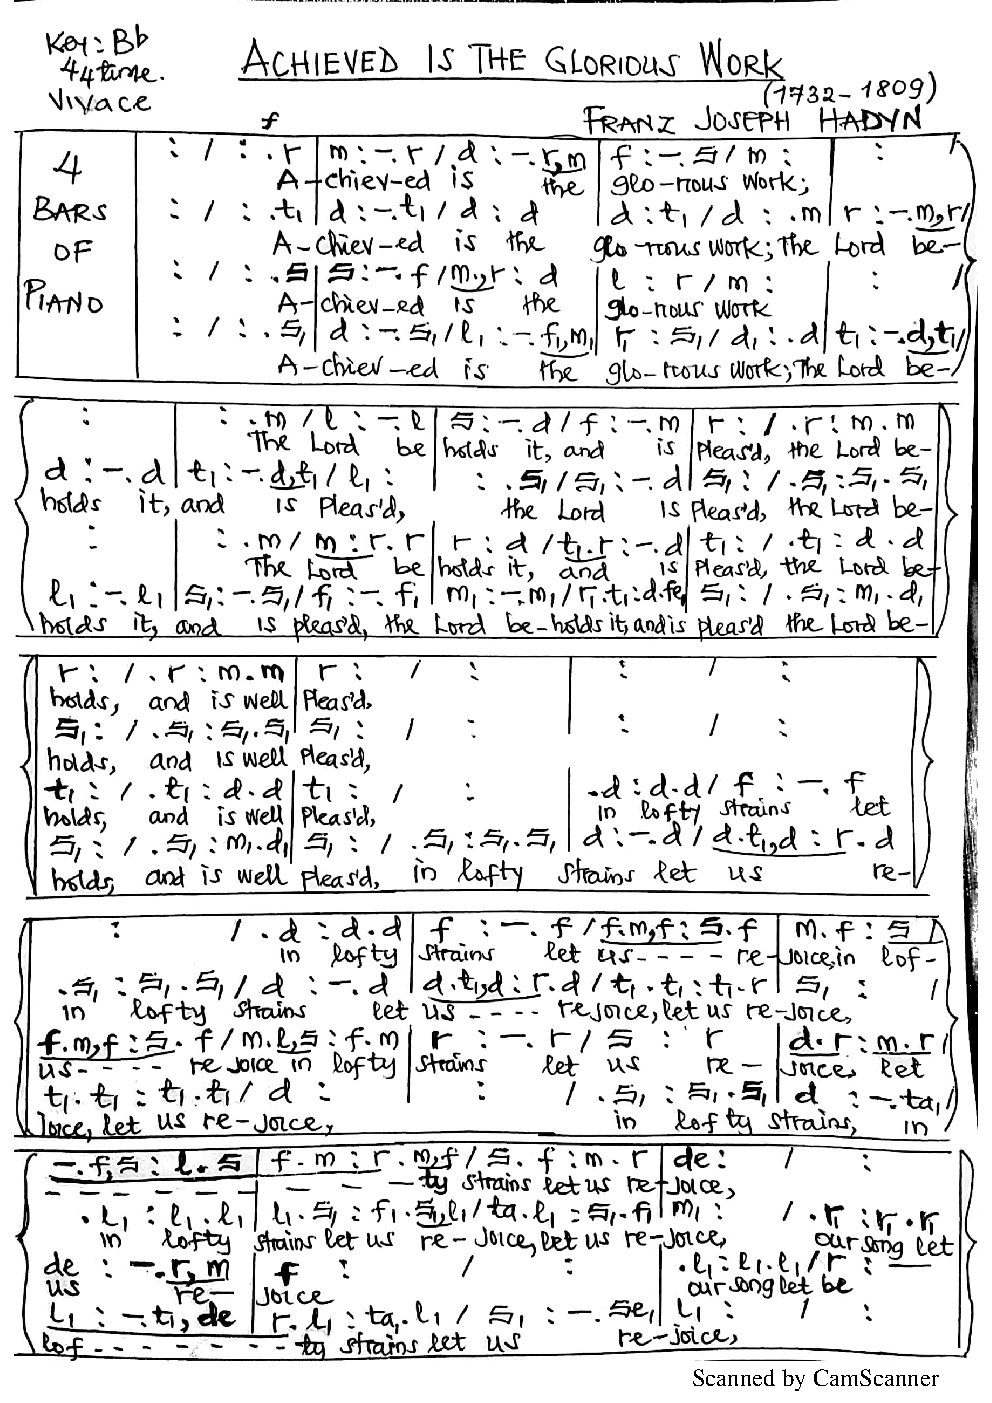 Key: Bb
44 time.
Vivace
ACHIEVED IS THE GLORIOUS WORK
(1732-1809)
FRANZ JOSEPH HADYN
f
4
BARS
OF
PIANO
: / : .r | m :-. r / d : -. r,m | f : -. s / m : | : /
A-chiev-ed is the glo-rious work;
: / : .t₁ | d :-. t₁ / d : d | d : t₁ / d : .m | r : -. m,r /
A-chiev-ed is the glo-rious work; The Lord be-
: / : .s | s :-. f / m.,r : d | l : r / m : | : /
A-chiev-ed is the glo-rious work
: / : .s₁ | d :-. s₁ / l₁ : -. f₁,m₁ | r₁ : s₁ / d₁ : .d | t₁ : -. d,t₁ /
A-chiev-ed is the glo-rious work; The Lord be-
: | : .m / l : -. l | s : -. d / f : -. m | r : / .r : m.m
The Lord be holds it, and is Pleas'd, the Lord be-
d : -. d | t₁ : -. d,t₁ / l₁ : | : .s₁ / s₁ : -. d | s₁ : / .s₁ : s₁.s₁
holds it, and is Pleas'd, the Lord is Pleas'd, the Lord be-
: | : .m / m : r.r | r : d / t₁.r : -. d | t₁ : / .t₁ : d.d
The Lord be holds it, and is Pleas'd, the Lord be-
l₁ : -. l₁ | s₁ : -. s₁ / f₁ : -. f₁ | m₁ : -. m₁ / r₁.t₁ : d.fe₁ | s₁ : / .s₁ : m₁.d₁
holds it, and is pleas'd, the Lord be-holds it, and is pleas'd the Lord be-
r : / .r : m.m | r : / : | : / :
holds, and is well Pleas'd,
s₁ : / .s₁ : s₁.s₁ | s₁ : / : | : / :
holds, and is well Pleas'd,
t₁ : / .t₁ : d.d | t₁ : / : | .d : d.d / f : -. f
holds, and is well Pleas'd, in lofty strains let
s₁ : / .s₁ : m₁.d₁ | s₁ : / .s₁ : s₁.s₁ | d : -. d / d.t₁,d : r.d
holds, and is well pleas'd, in lofty strains let us re-
: / .d : d.d | f : -. f / f.m,f : s.f | m.f : s /
in lofty strains let us---- re-joice, in lof-
.s₁ : s₁.s₁ / d : -. d | d.t₁,d : r.d / t₁.t₁ : t₁.r | s₁ : /
in lofty strains let us ---- rejoice, let us re-joice,
f.m,f : s.f / m.l,s : f.m | r : -. r / s : r | d.r : m.r /
us---- re joice in lofty strains let us re- joice, let
t₁.t₁ : t₁.t₁ / d : | : / .s₁ : s₁.s₁ | d : -. ta₁ /
Joice, let us re-joice, in lofty strains, in
-. f,s : l.s | f.m : r.m,f / s.f : m.r | de : / :
- - - - - - - - - - ty strains let us re-joice,
.l₁ : l₁.l₁ | l₁.s₁ : f₁.s₁,l₁ / ta.l₁ : s₁.f₁ | m₁ : / .r₁ : r₁.r₁
in lofty strains let us re-joice, let us re-joice, our song let
de : -. r,m | f : / : | .l₁ : l₁.l₁ / r :
us re- joice our song let be
l₁ : -. t₁,de | r.l₁ : ta₁.l₁ / s₁ : -. se₁ | l₁ : / :
lof- - - - - - - - ty strains let us re-joice,
Scanned by CamScanner